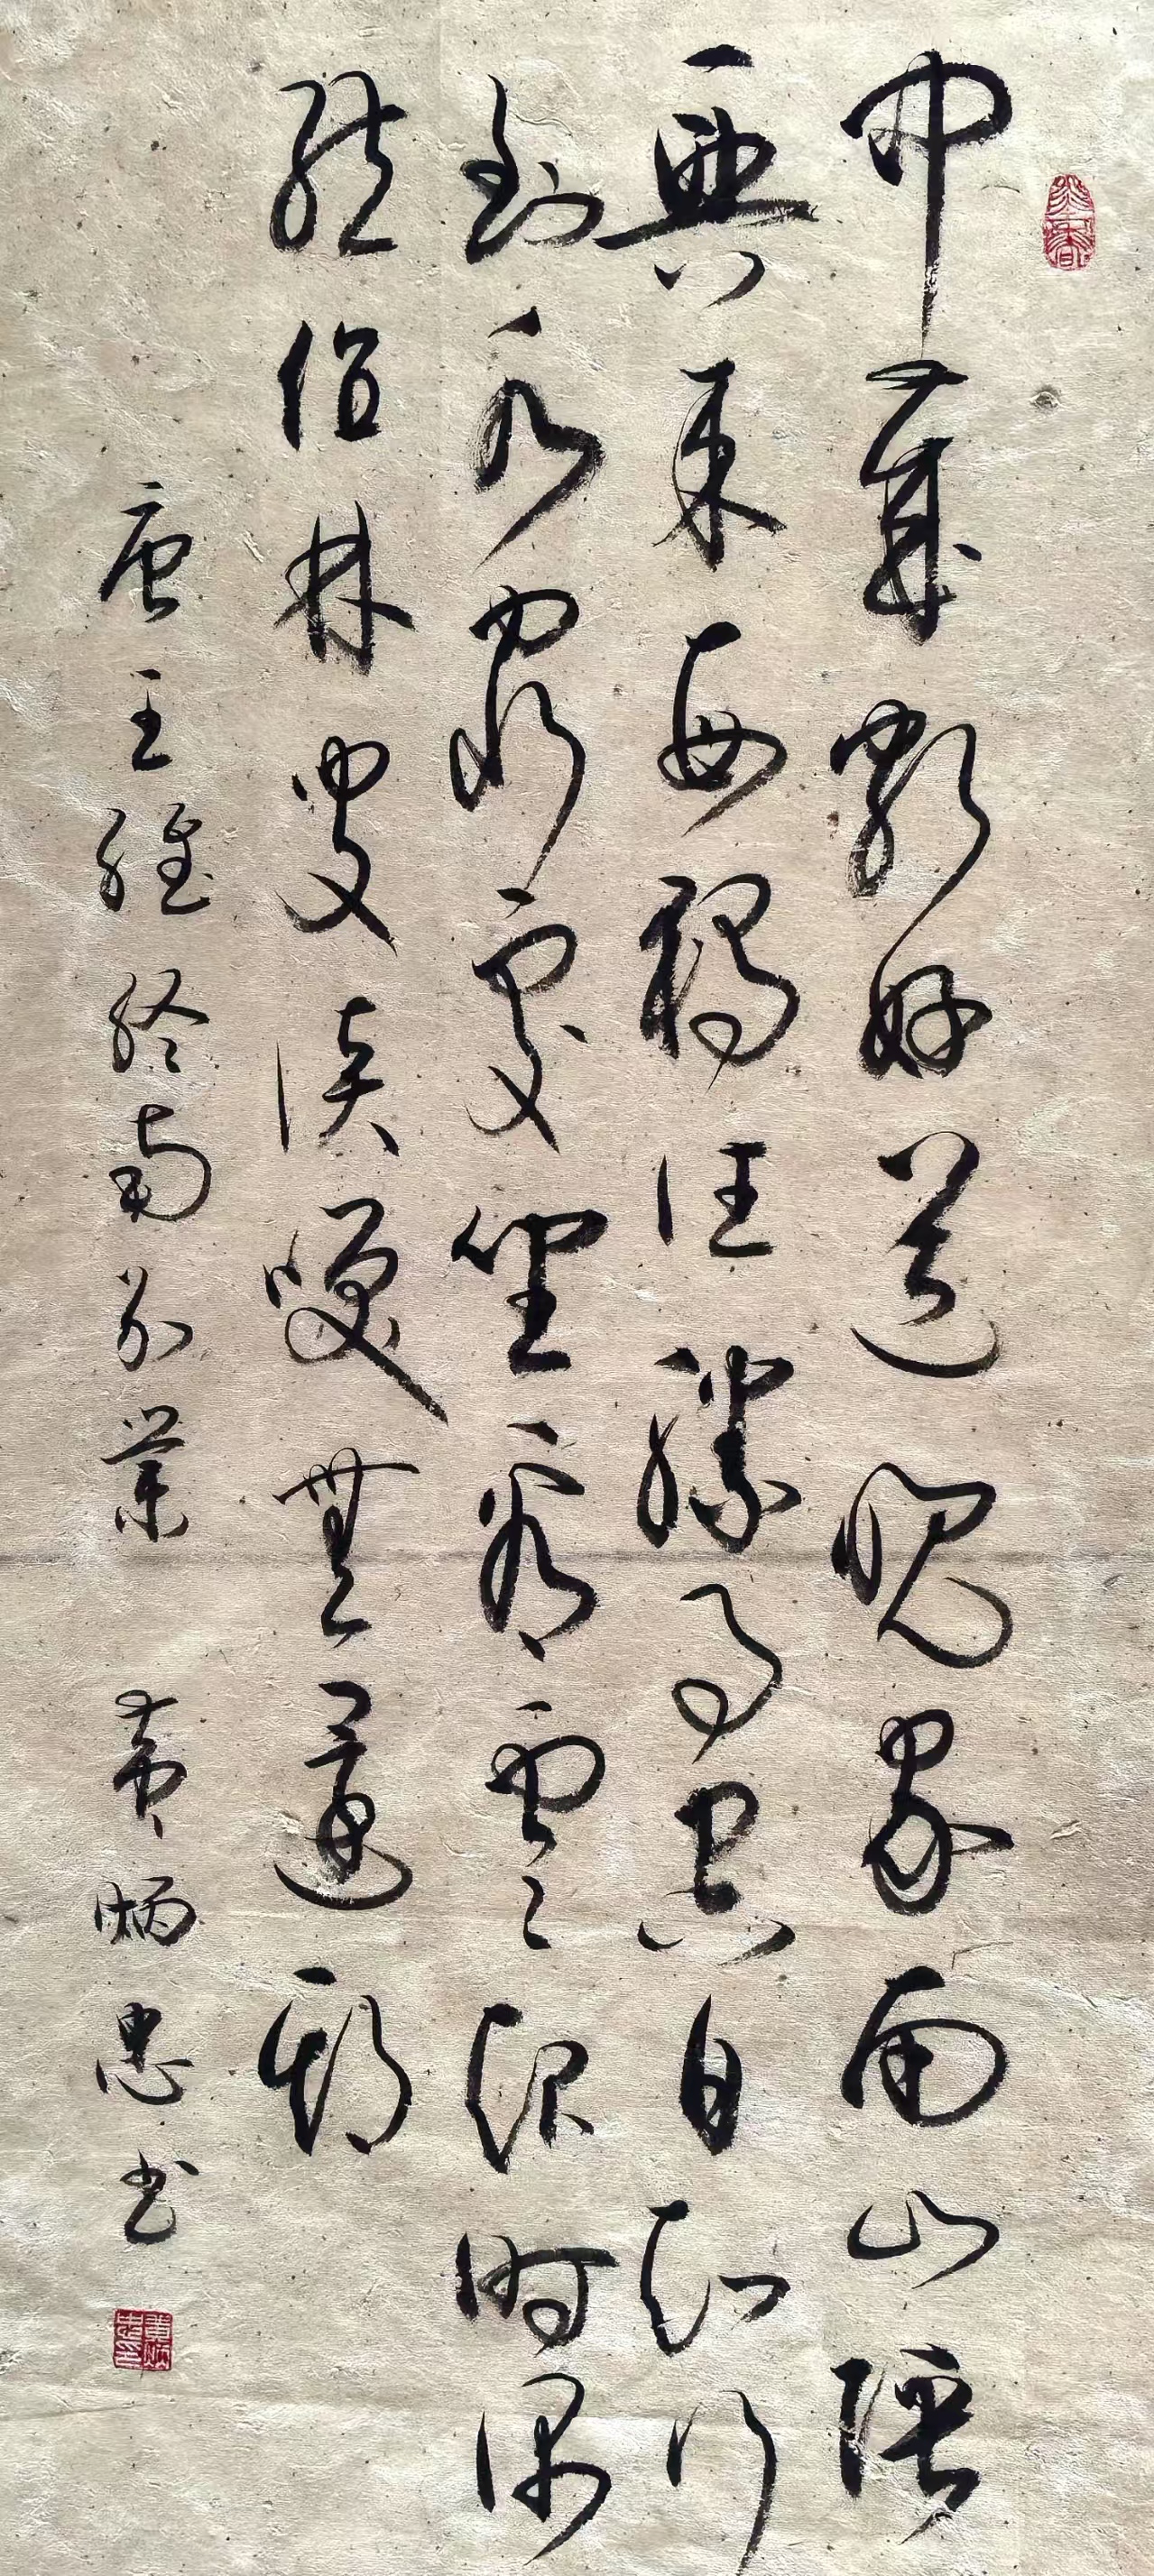 中歲頗好道晚家南山陲
興來每獨往勝事空自知行
到水窮處坐看雲起時偶
然值林叟談笑無還期
唐王維終南别業 黄炳忠书